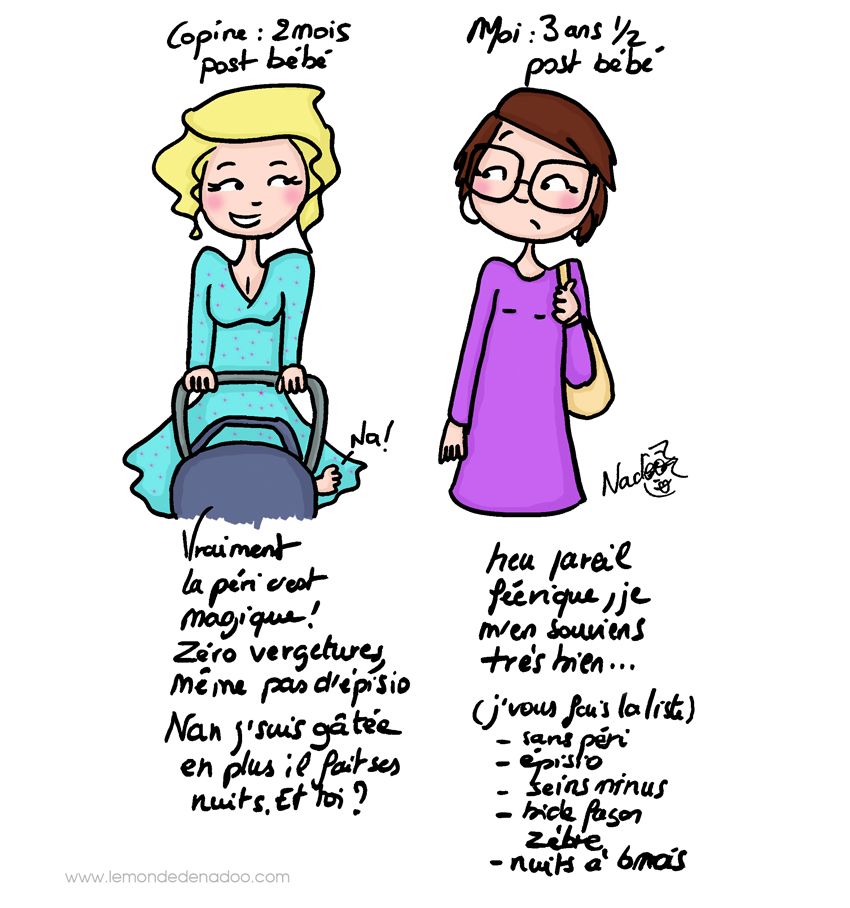 Copine : 2 mois
post bébé
Moi : 3 ans ½
post bébé
Na!
Nadoo
Vraiment
la péri c'est
magique!
Zéro vergetures,
même pas d'épisio
Nan j'suis gâtée
en plus il fait ses
nuits. Et toi?
heu pareil
féérique, je
m'en souviens
très bien...
(j'vous fais la liste)
- sans péri
- épisio
- seins minus
- bide façon
zèbre
- nuits à 6 mois
www.lemondedenadoo.com